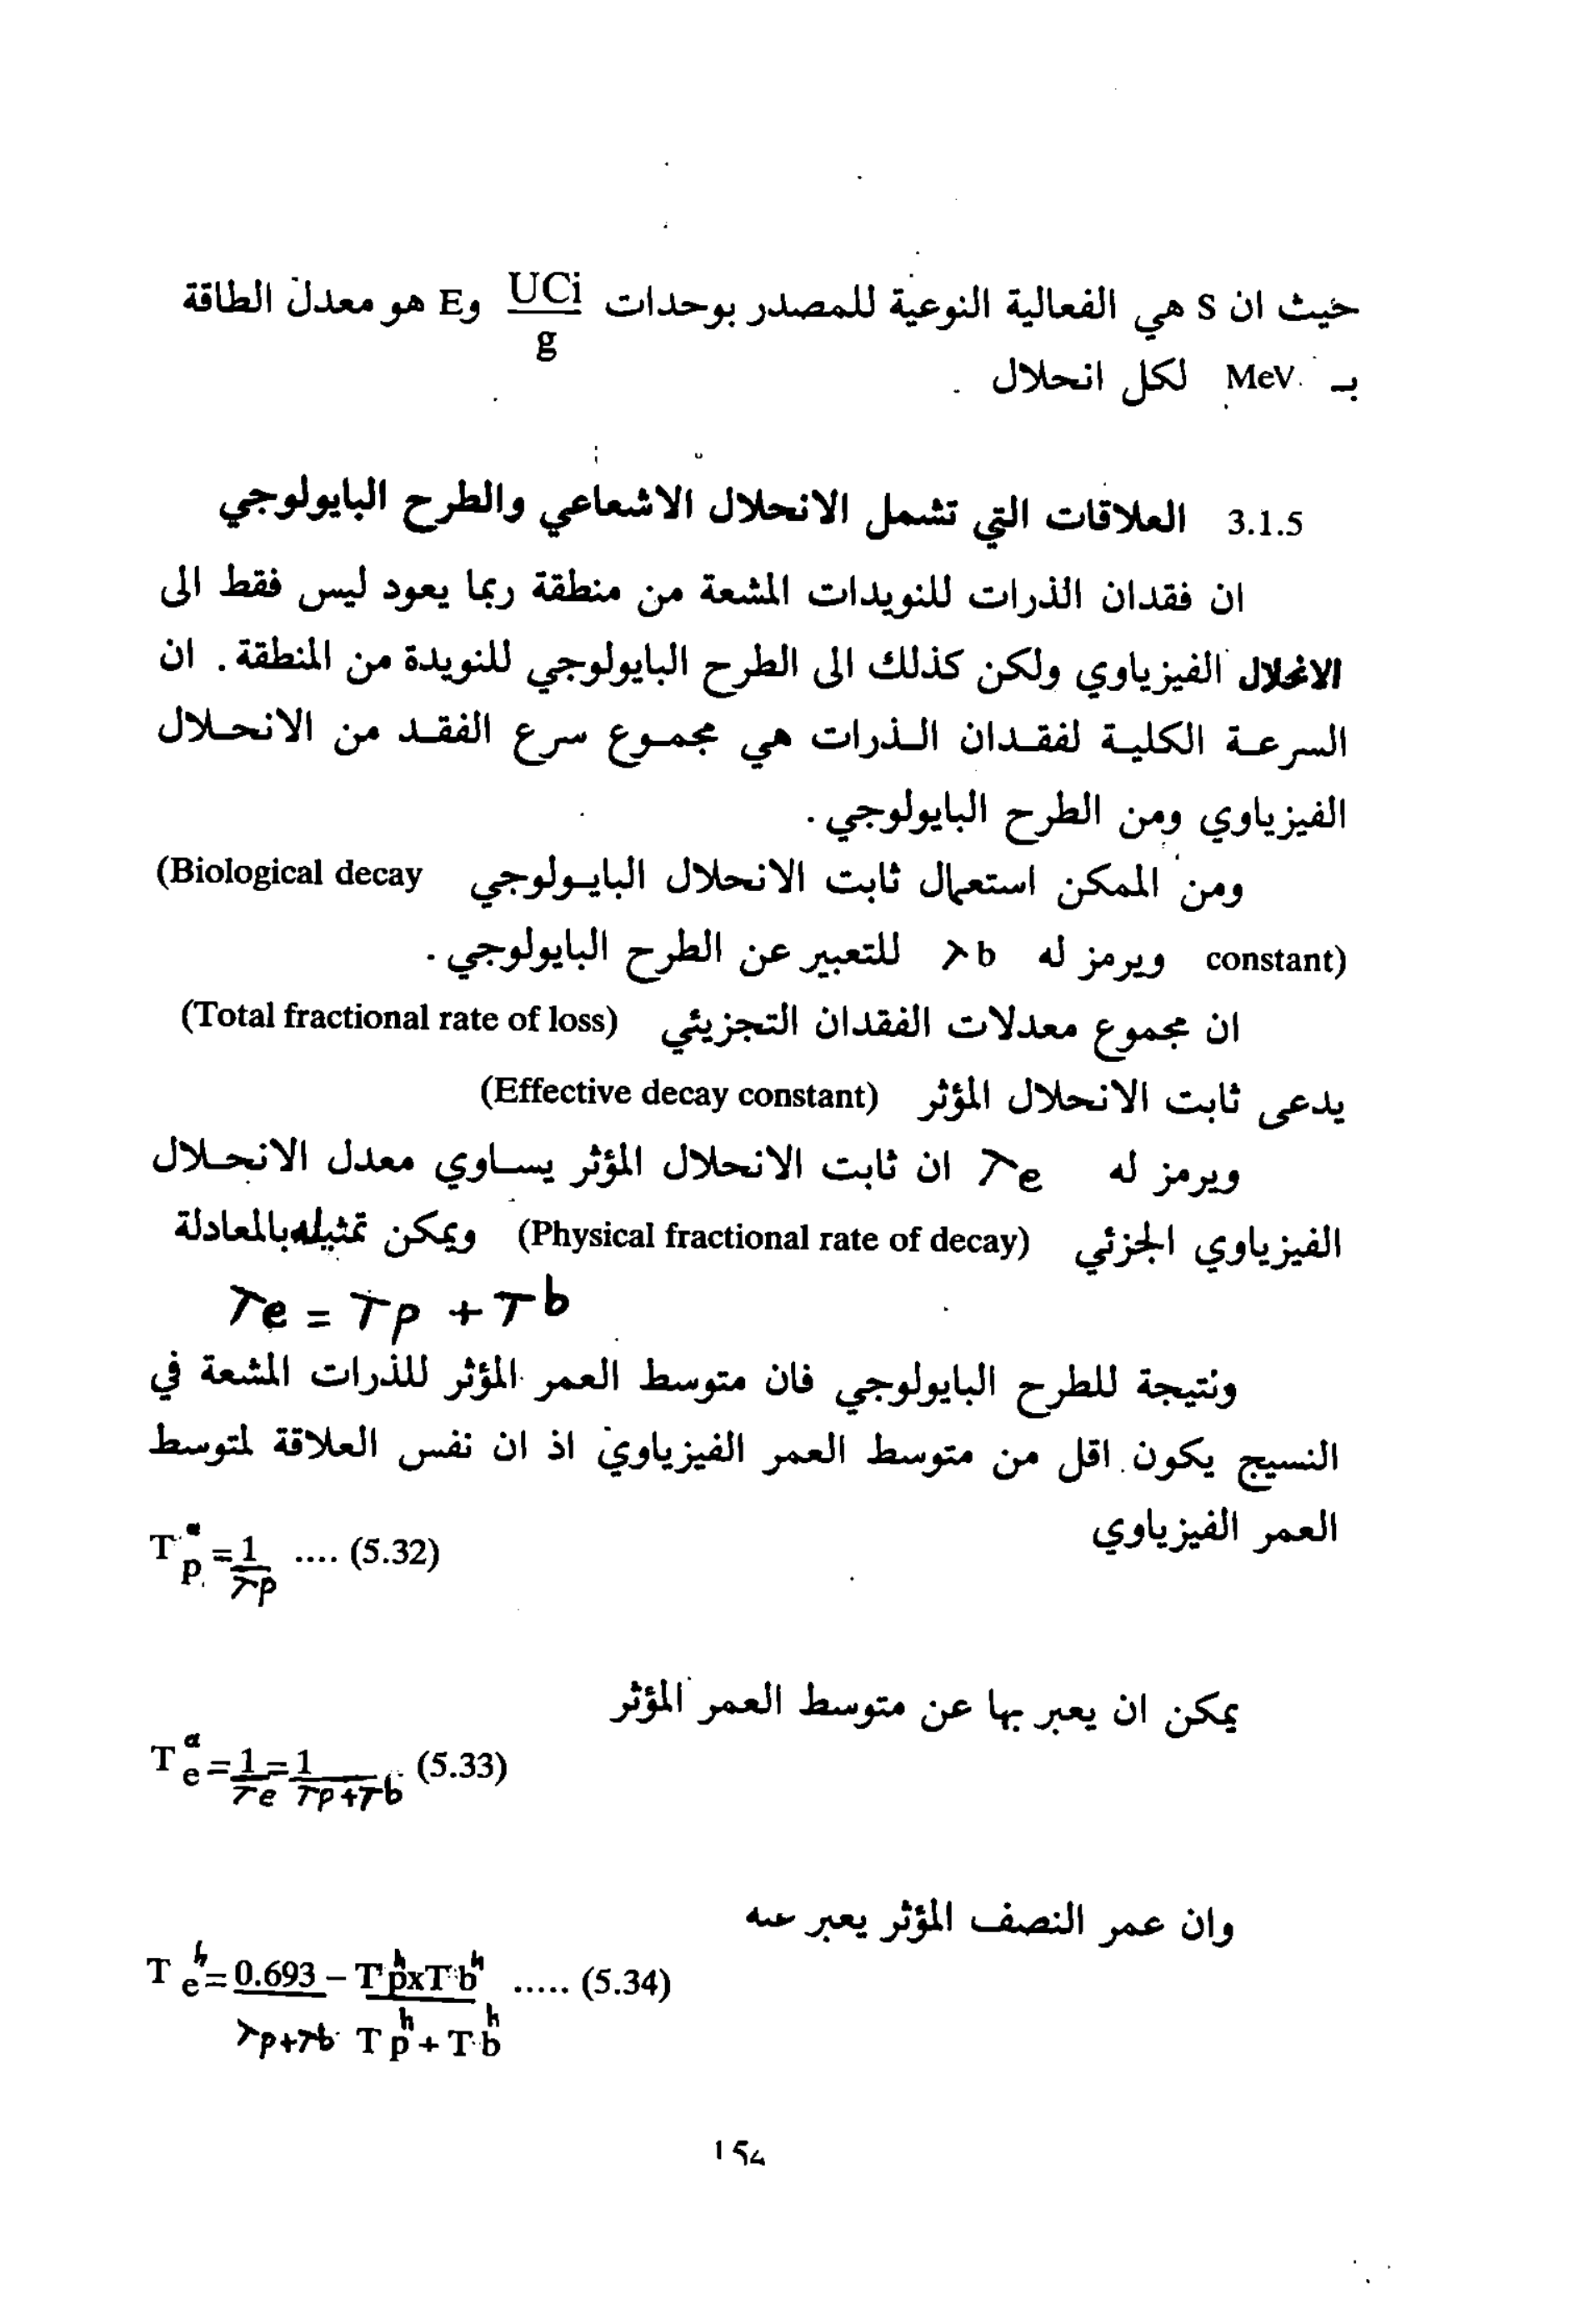 حيث ان S هي الفعالية النوعية للمصدر بوحدات UCi/g وE هو معدل الطاقة
بـ MeV لكل انحلال .
3.1.5 العلاقات التي تشمل الانحلال الاشعاعي والطرح البايولوجي
ان فقدان الذرات للنويدات المشعة من منطقة ربما يعود ليس فقط الى
الانحلال الفيزياوي ولكن كذلك الى الطرح البايولوجي للنويدة من المنطقة . ان
السرعة الكلية لفقدان الذرات هي مجموع سرع الفقد من الانحلال
الفيزياوي ومن الطرح البايولوجي .
ومن الممكن استعمال ثابت الانحلال البايولوجي (Biological decay
constant) ويرمز له λb للتعبير عن الطرح البايولوجي .
ان مجموع معدلات الفقدان التجزيئي (Total fractional rate of loss)
يدعى ثابت الانحلال المؤثر (Effective decay constant)
ويرمز له λe ان ثابت الانحلال المؤثر يساوي معدل الانحلال
الفيزياوي الجزئي (Physical fractional rate of decay) ويمكن تمثيله بالمعادلة
λe = λp + λb
ونتيجة للطرح البايولوجي فان متوسط العمر المؤثر للذرات المشعة في
النسيج يكون اقل من متوسط العمر الفيزياوي اذ ان نفس العلاقة لمتوسط
العمر الفيزياوي
T p a = 1/λp .... (5.32)
يمكن ان يعبر بها عن متوسط العمر المؤثر
T e a = 1/λe = 1/λp+λb .. (5.33)
وان عمر النصف المؤثر يعبر عنه
T e h = 0.693/λp+λb – T p h x T b h / T p h + T b h ..... (5.34)